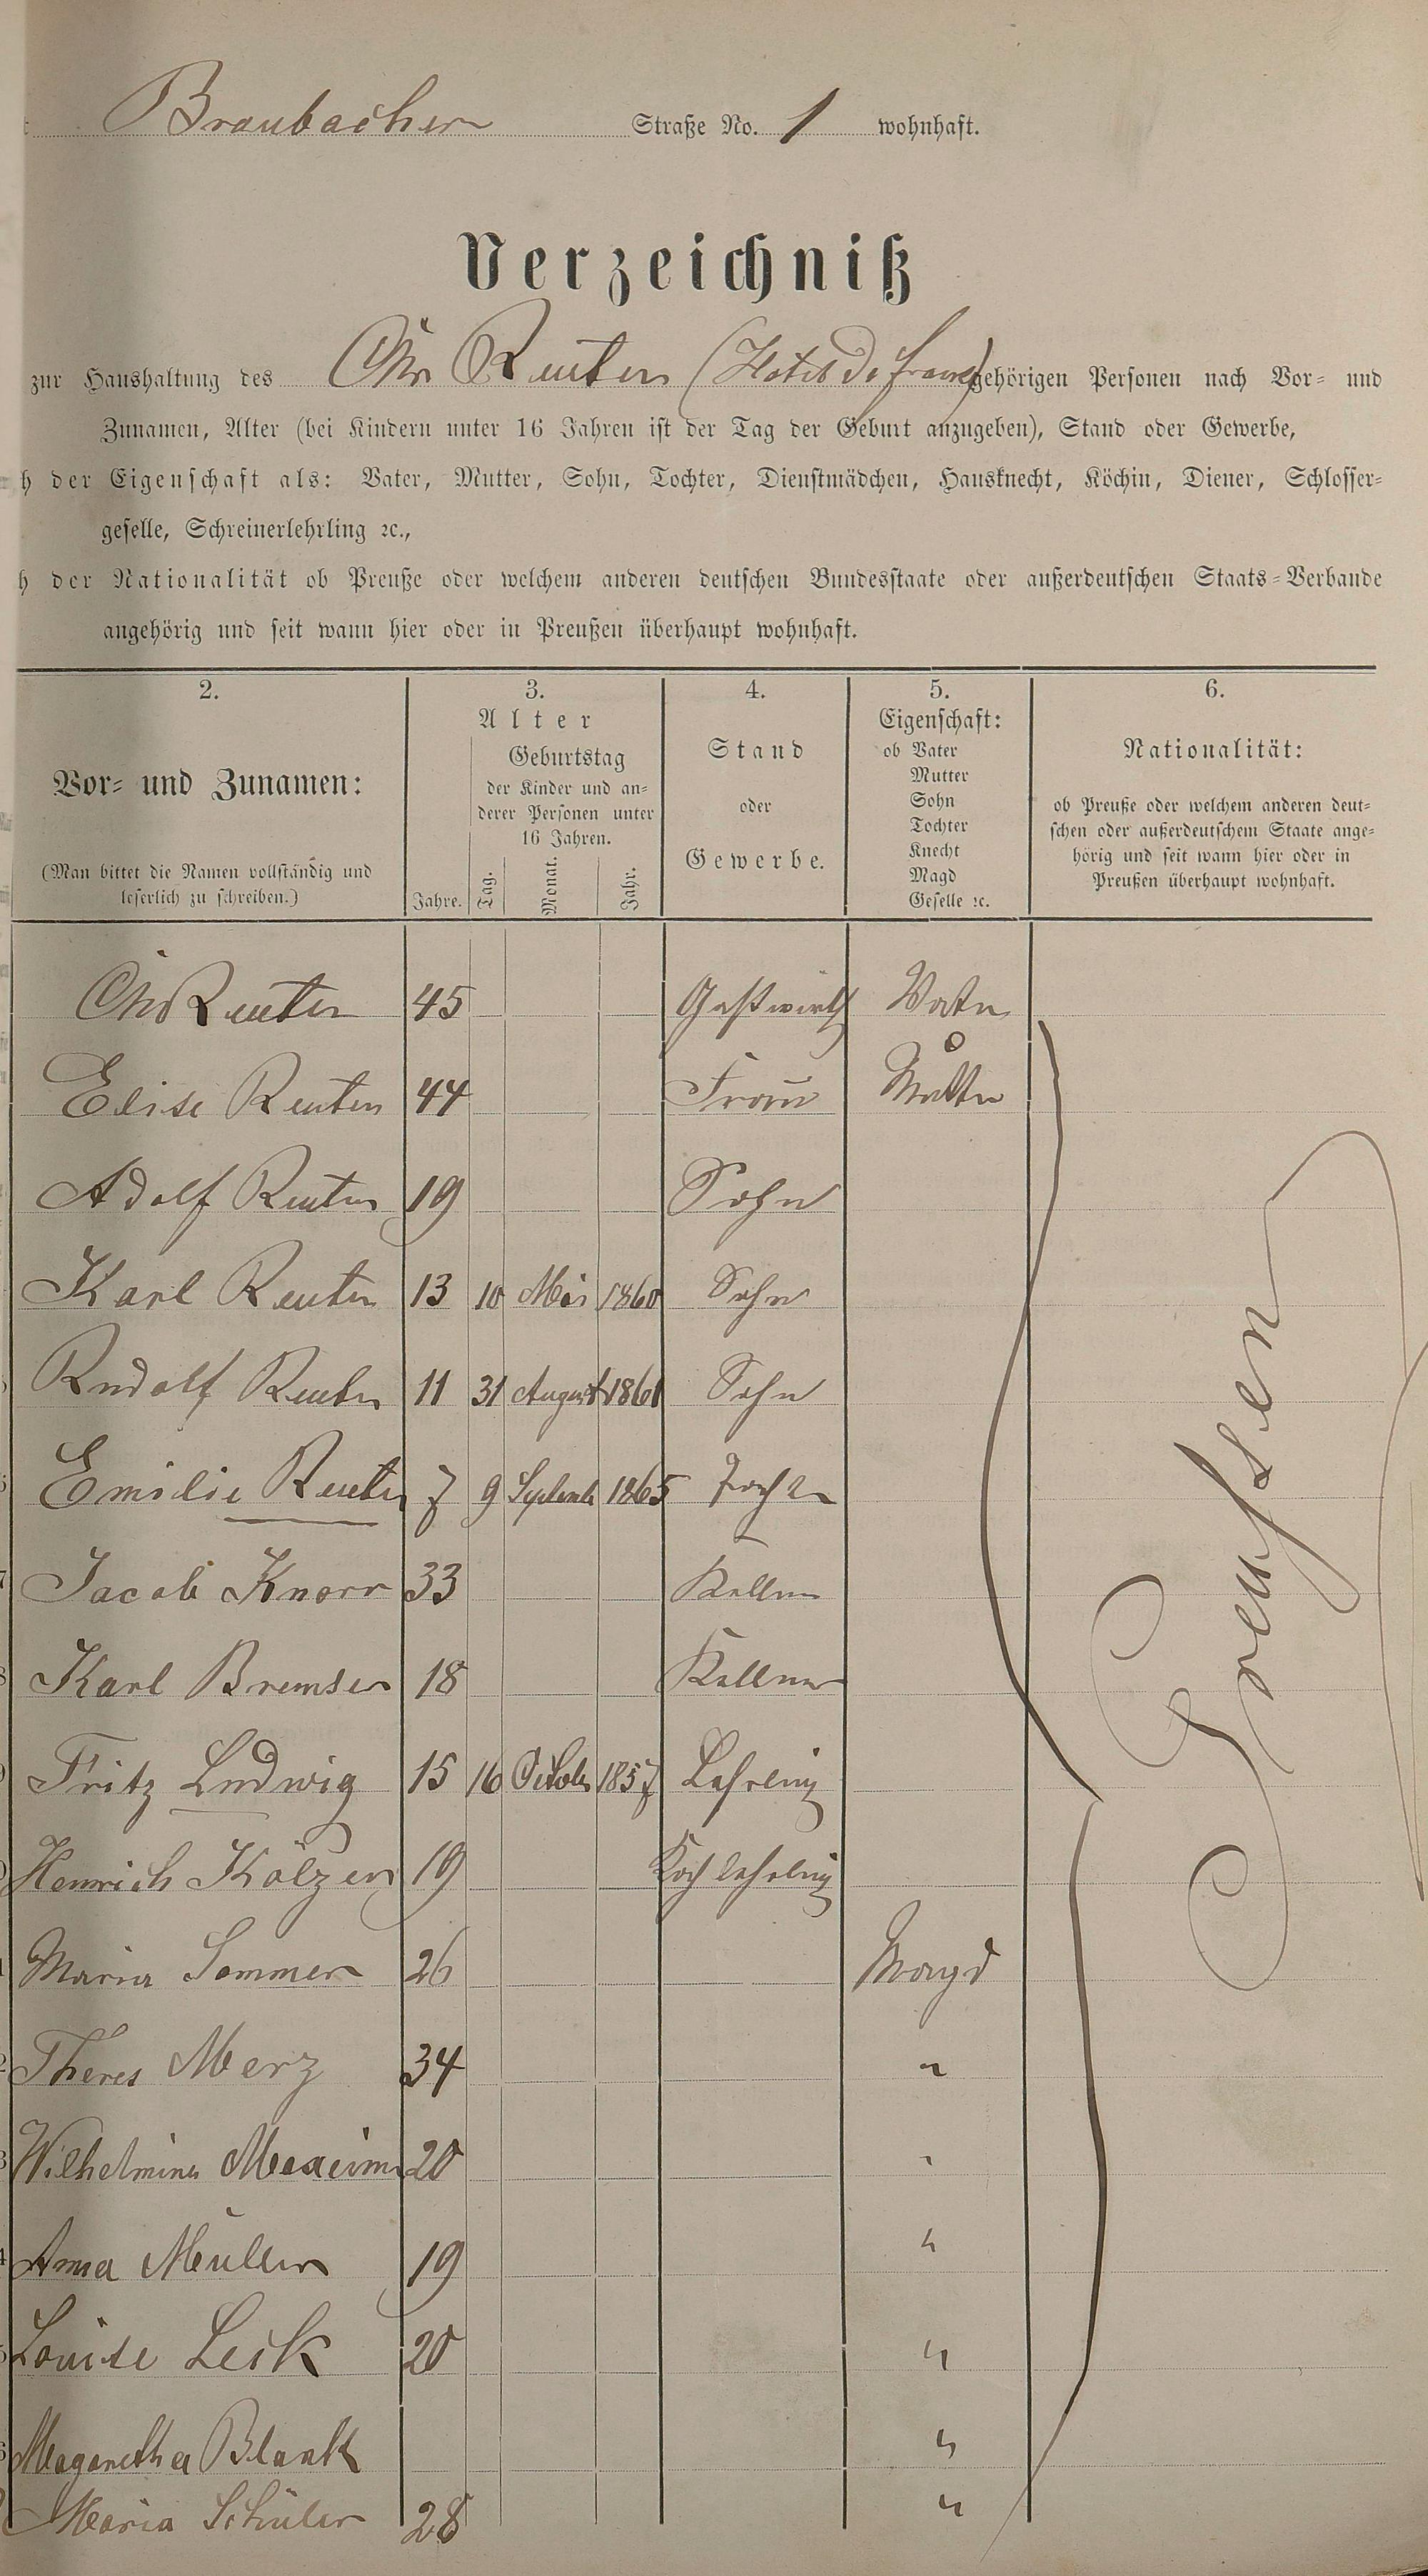 Braubacher Straße No. 1 wohnhaft.
Verzeichniß
zur Haushaltung des Chr Reuter (Hotel de France) gehörigen Personen nach Vor- und
Zunamen, Alter (bei Kindern unter 16 Jahren ist der Tag der Geburt anzugeben), Stand oder Gewerbe,
h der Eigenschaft als: Vater, Mutter, Sohn, Tochter, Dienstmädchen, Hausknecht, Köchin, Diener, Schlosser-
geselle, Schreinerlehrling ꝛc.,
h der Nationalität ob Preuße oder welchem anderen deutschen Bundesstaate oder außerdeutschen Staats-Verbande
angehörig und seit wann hier oder in Preußen überhaupt wohnhaft.
2. 3. 4. 5. 6.
Vor- und Zunamen:
(Man bittet die Namen vollständig und
leserlich zu schreiben.)
Alter
Geburtstag
der Kinder und an-
derer Personen unter
16 Jahren.
Jahre. Tag. Monat. Jahr.
Stand
oder
Gewerbe.
Eigenschaft:
ob Vater
Mutter
Sohn
Tochter
Knecht
Magd
Geselle ꝛc.
Nationalität:
ob Preuße oder welchem anderen deut-
schen oder außerdeutschem Staate ange-
hörig und seit wann hier oder in
Preußen überhaupt wohnhaft.
Chr Reuter 45 Gastwirth Vater
Elise Reuter 44 Frau Mutter
Adolf Reuter 19 Sohn
Karl Reuter 13 10 Mai 1860 Sohn
Rudolf Reuter 11 31 August 1861 Sohn
Emilie Reuter 7 9 Septembr 1865 Tochter
Jacob Knorr 33 Kellner
Karl Bremser 18 Kellner
Fritz Ludwig 15 16 October 1857 Lehrling
Henrich Kölzer 19 Koch lehrling
Maria Sommer 26 Magd
Theres Merz 34 "
Wilhelmina 20 "
Anna Müller 19 "
Louise Leik 20 "
Magaretha Blank "
Maria Schüler 28 "
Preussen